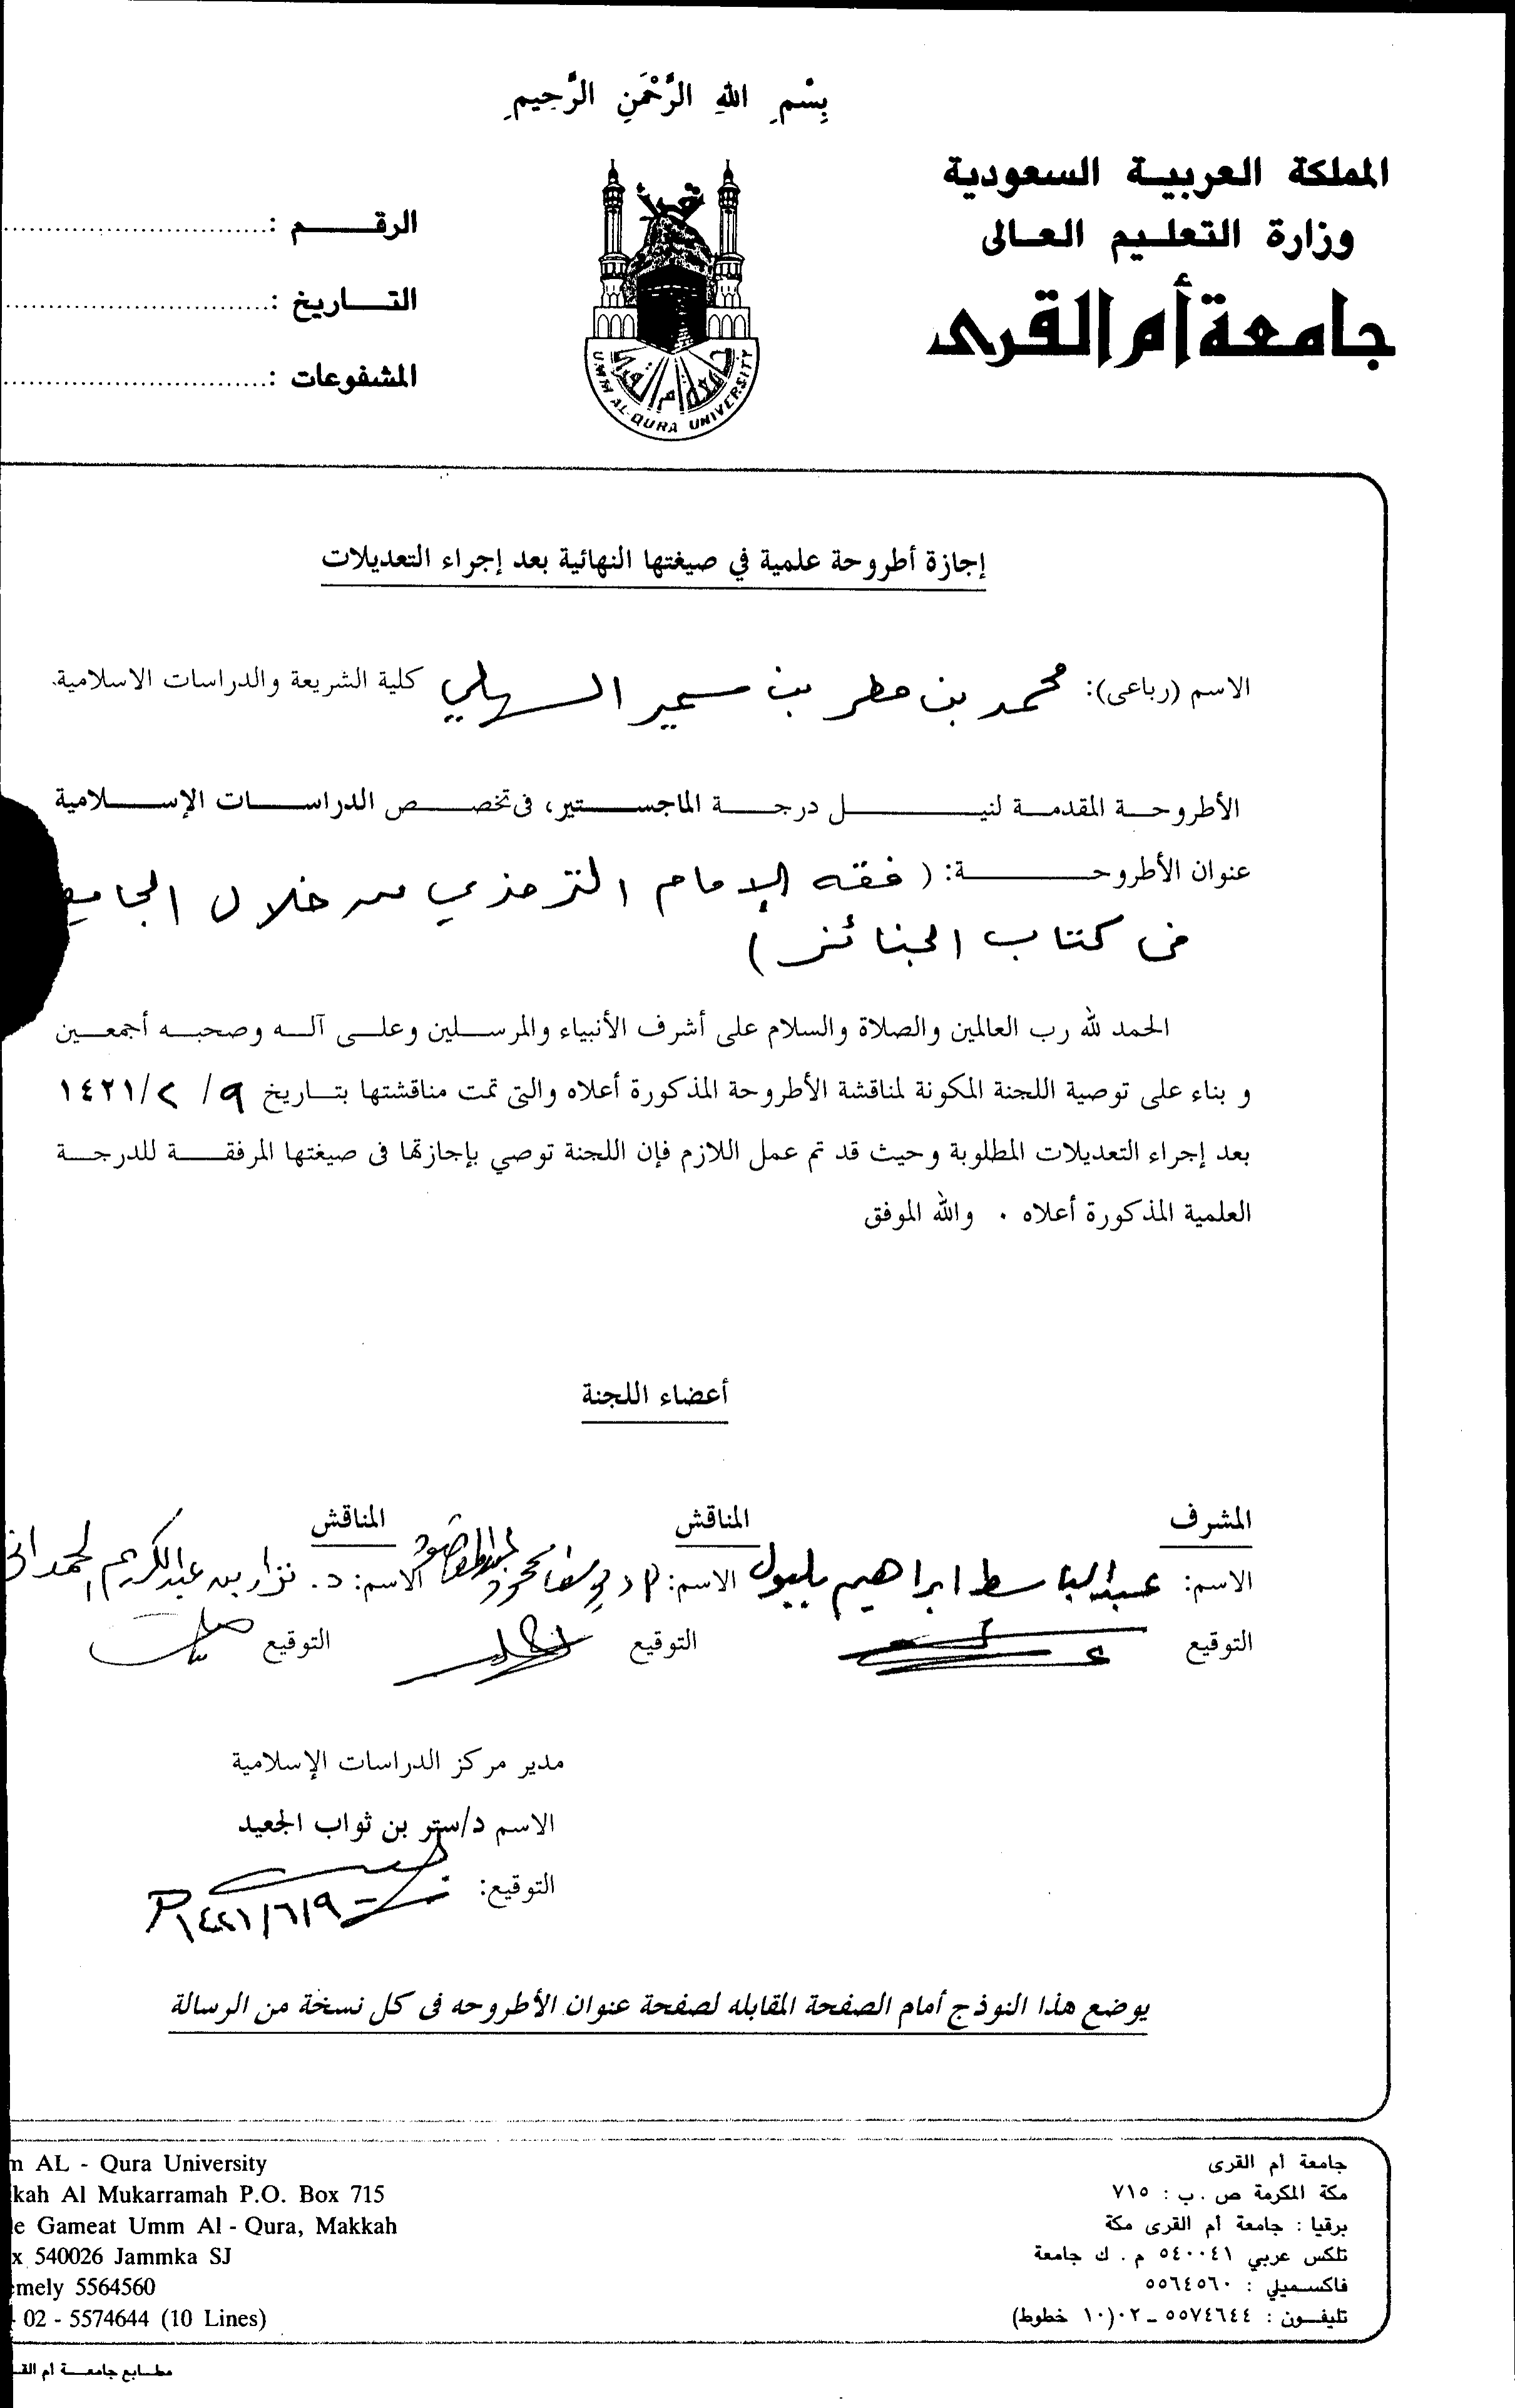 بِسْمِ اللهِ الرَّحْمَنِ الرَّحِيمِ
المملكة العربية السعودية
وزارة التعليم العالى
جامعة أم القرى
الرقم :
التاريخ :
المشفوعات :
جامعة أم القرى
UMM AL-QURA UNIVERSITY
إجازة أطروحة علمية في صيغتها النهائية بعد إجراء التعديلات
الاسم (رباعى): محمد بن مطر بن سمير السهلي كلية الشريعة والدراسات الاسلامية.
الأطروحة المقدمة لنيل درجة الماجستير، فى تخصص الدراسات الإسلامية
عنوان الأطروحة: ( فقه الإمام الترمذي من خلال الجامع
من كتاب الجنائز )
الحمد لله رب العالمين والصلاة والسلام على أشرف الأنبياء والمرسلين وعلى آله وصحبه أجمعين
و بناء على توصية اللجنة المكونة لمناقشة الأطروحة المذكورة أعلاه والتى تمت مناقشتها بتاريخ ٩ / ٢ /١٤٢١
بعد إجراء التعديلات المطلوبة وحيث قد تم عمل اللازم فإن اللجنة توصي بإجازتها فى صيغتها المرفقة للدرجة
العلمية المذكورة أعلاه . والله الموفق
أعضاء اللجنة
المشرف المناقش المناقش
الاسم: عبدالباسط ابراهيم بلبول الاسم: الاسم: د. نزار بن عبدالكريم الحمدانى
التوقيع التوقيع التوقيع
مدير مركز الدراسات الإسلامية
الاسم د/ستر بن ثواب الجعيد
التوقيع: ١٤٢١/٦/٩
يوضع هذا النوذج أمام الصفحة المقابله لصفحة عنوان الأطروحه فى كل نسخة من الرسالة
جامعة أم القرى
مكة المكرمة ص . ب : ٧١٥
برقيا : جامعة أم القرى مكة
تلكس عربي ٥٤٠٠٤١ م . ك جامعة
فاكسميلي : ٥٥٦٤٥٦٠
تليفون : ٥٥٧٤٦٤٤ – ٠٢ (١٠ خطوط)
m AL - Qura University
kah Al Mukarramah P.O. Box 715
le Gameat Umm Al - Qura, Makkah
x 540026 Jammka SJ
emely 5564560
02 - 5574644 (10 Lines)
مطابع جامعة أم القـ